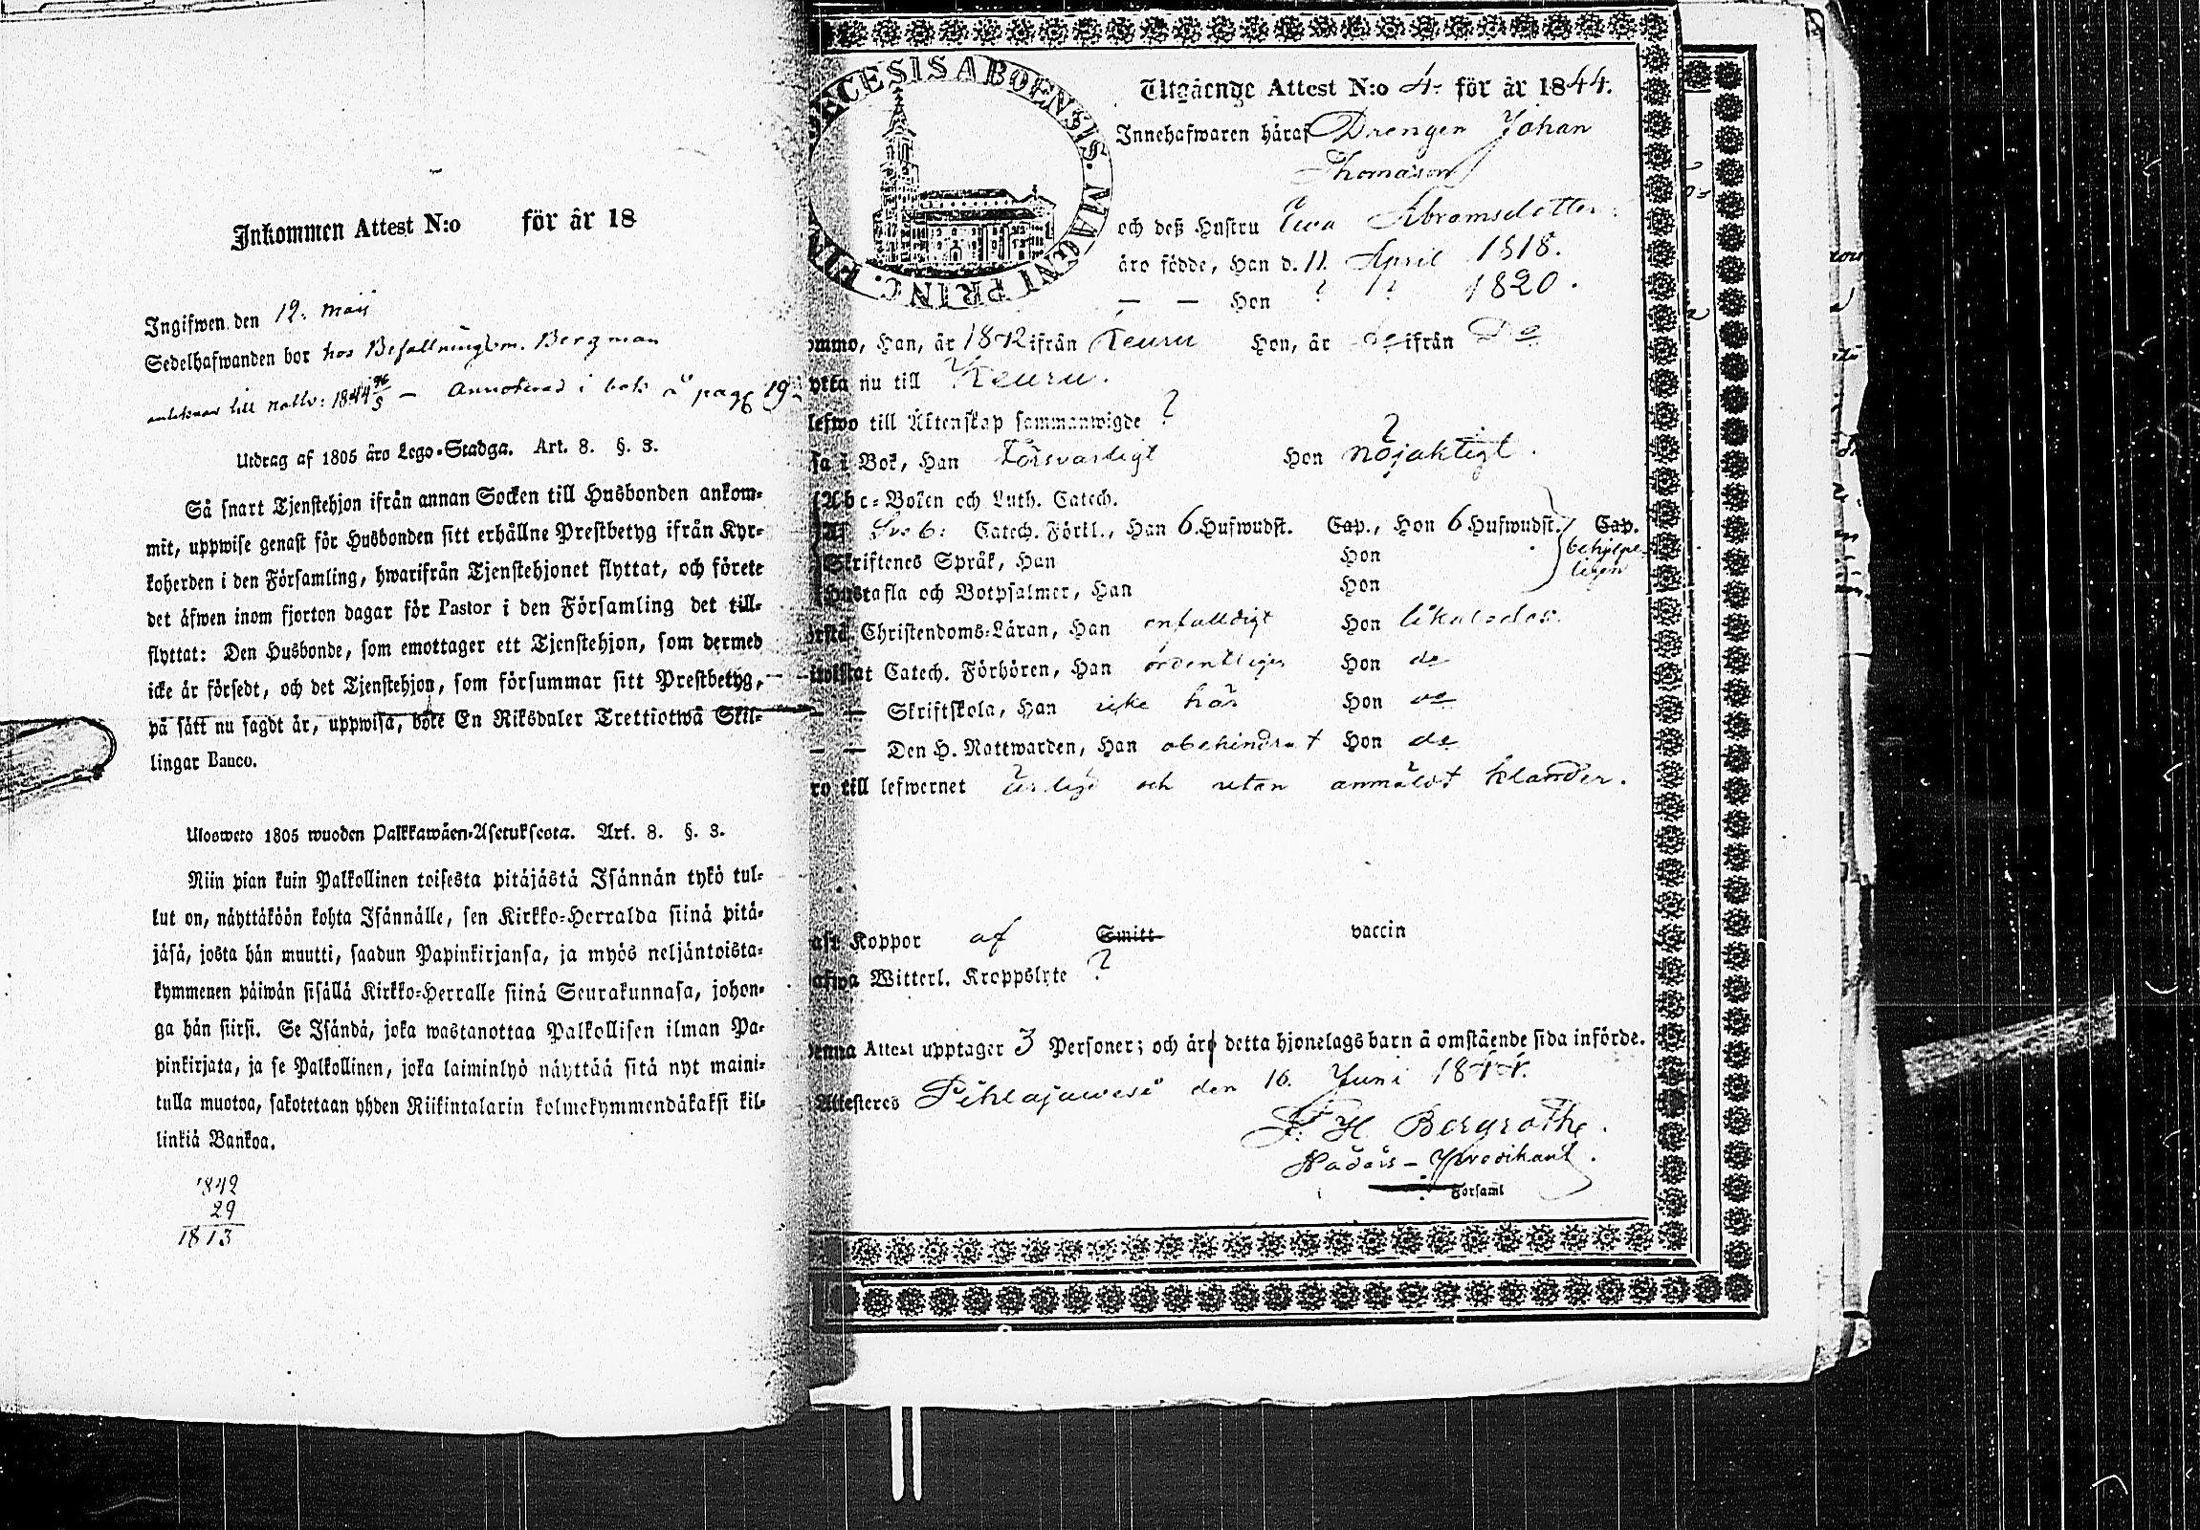 Inkommen Attest N:o för år 18
Ingifwen den 12. Maii
Sedelhafwanden bor hos Befallningsm. Bergman
till 1844 — Annoterad i bok å pag 19
Utdrag af 1805 åro Lego-Stadga. Art. 8. §. 3.
Så snart Tjenstehjon ifrån annan Socken till Husbonden ankom-
mit, uppwise genast för Husbonden sitt erhållne Prestbetyg ifrån Kyr-
koherden i den Församling, hwarifrån Tjenstehjonet flyttat, och förete
det åfwen inom fjorton dagar för Pastor i den Församling det till-
flyttat: Den Husbonde, som emottager ett Tjenstehjon, som dermed
icke år försedt, och det Tjenstehjon, som försummar sitt Prestbetyg,
på sått nu sagdt år, uppwisa, böte En Riksdaler Trettiotwå Skil-
lingar Banco.
Ulosweto 1805 wuoden Palkkawäen-Asetuksesta. Art. 8. §. 3.
Niin pian kuin Palkollinen toisesta pitäjästä Isännän tykö tul-
lut on, näyttäköön kohta Isännälle, sen Kirkko-Herralda siinä pitä-
jäsä, josta hän muutti, saadun Papinkirjansa, ja myös neljäntoista-
kymmenen päiwän sisällä Kirkko-Herralle siinä Seurakunnasa, johon-
ga hän siirsi. Se Isändä, joka wastanottaa Palkollisen ilman Pa-
pinkirjata, ja se Palkollinen, joka laiminlyö näyttää sitä nyt maini-
tulla muotoa, sakotetaan yhden Riikintalarin kolmekymmendäkaksi kil-
linkiä Bankoa.
1842
29
1813
ECESIS ABOENSIS. MAGNI PRINC. FIN
Utgående Attest N:o 4. för år 1844.
Innehafwaren häraf Drengen Johan
Thomasson
och deß Hustru Ewa Abramsdotter.
äro födde, Han d. 11. April 1818.
— — Hon ? 1? 1820.
ommo, Han, år 1842 ifrån Keuru Hon, år do ifrån Do
ytta nu till Keuru.
lefwo till Äktenskap sammanwigde ?
sa i Bok, Han försvarligt Hon nöjaktigt.
Abc-Boken och Luth. Catech.
Af Catech. Förkl., Han 6. Hufwudst. Cap., Hon 6 Hufwudst. Cap.
behjelpe-
ligen
Skriftenes Språk, Han Hon
Hustafla och Botpsalmer, Han Hon
örstå Christendoms-Läran, Han enfalldigt Hon likaledes.
iwistat Catech. Förhören, Han ordentligen Hon do
— — Skriftskola, Han icke här Hon do
— — Den H. Nattwarden, Han obehindrat Hon do
ro till lefwernet ärlige och utan anmäldt klander.
aft Koppor af Smitt vaccin
afwa Witterl. Kroppslyte ?
Denna Attest upptager 3 Personer; och äro detta hjonelags barn å omstående sida införde.
Attesteres Pihlajawesi den 16. Juni 1844.
F. H. Bergrothe.
Nådårs-Predikant.
Församl